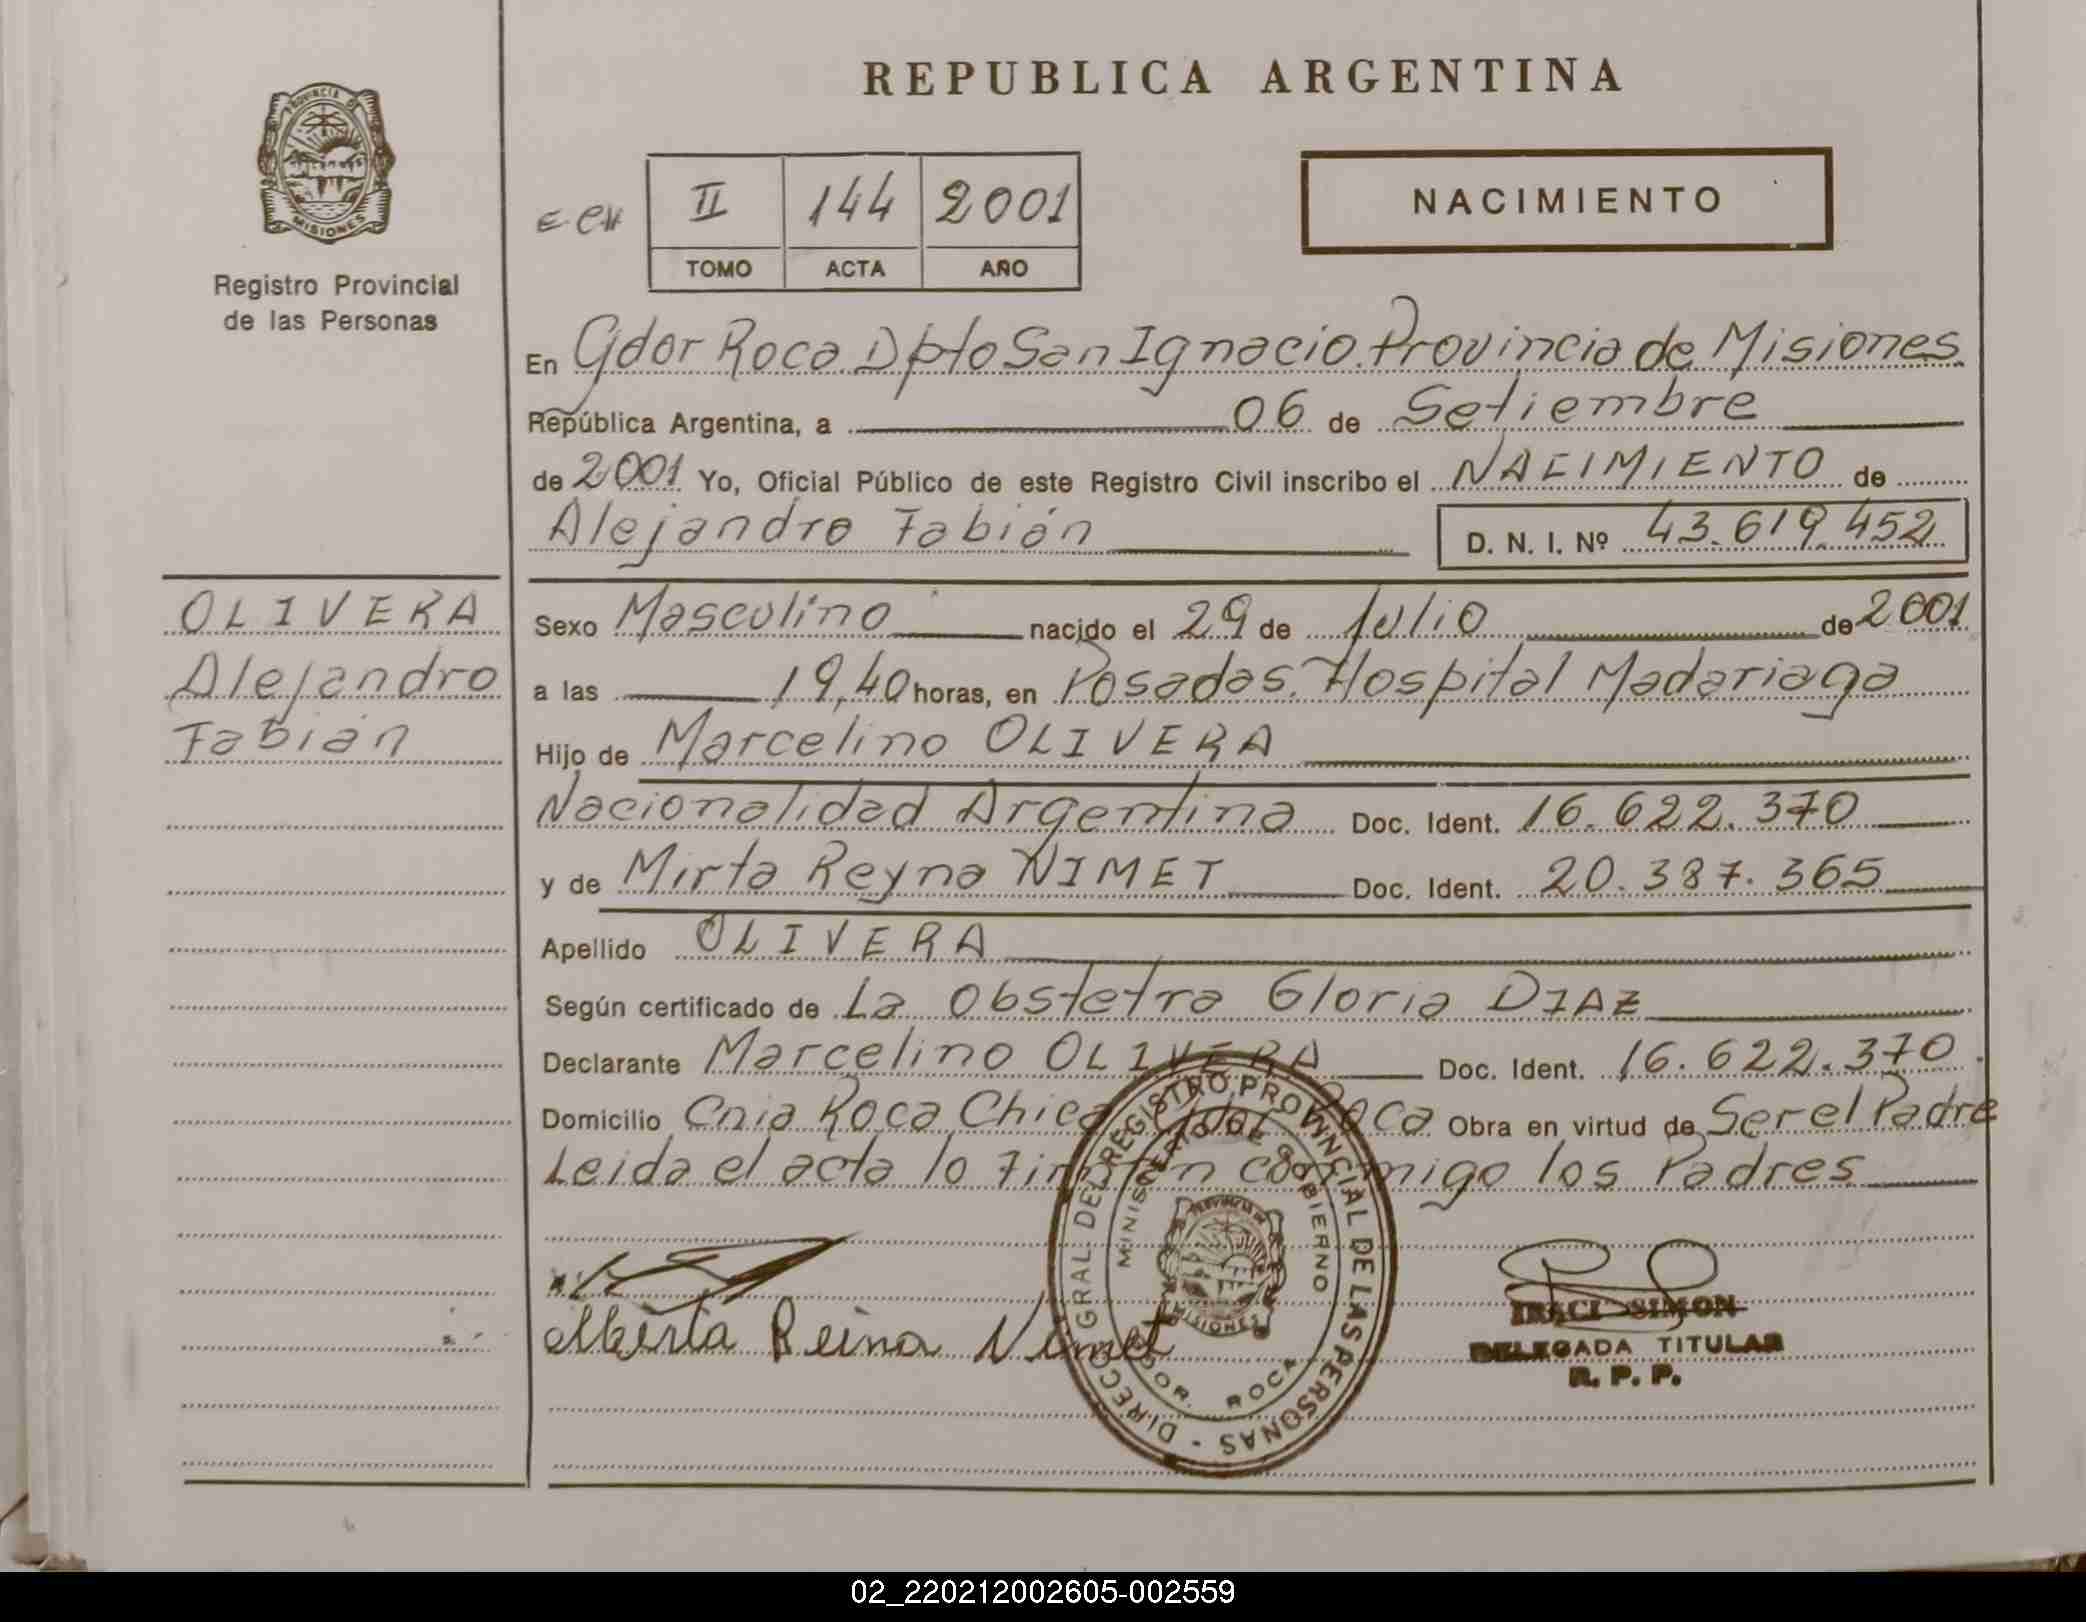 REPUBLICA ARGENTINA
PROVINCIA DE
MISIONES
Registro Provincial
de las Personas
II 144 2001
TOMO ACTA AÑO
NACIMIENTO
En Gdor Roca Dpto San Ignacio. Provincia de Misiones
República Argentina, a 06 de Setiembre
de 2001 Yo, Oficial Público de este Registro Civil inscribo el NACIMIENTO de
Alejandro Fabián D. N. I. Nº 43.619.452
OLIVERA
Alejandro
Fabián
Sexo Masculino nacido el 29 de Julio de 2001
a las 19,40 horas, en Posadas. Hospital Madariaga
Hijo de Marcelino OLIVERA
Nacionalidad Argentina Doc. Ident. 16.622.370
y de Mirta Reyna NIMET Doc. Ident. 20.387.365
Apellido OLIVERA
Según certificado de La Obstetra Gloria DIAZ
Declarante Marcelino OLIVERA Doc. Ident. 16.622.370.
Domicilio Cnia Roca Chica Gdor Roca Obra en virtud de Ser el Padre
Leida el acta lo firman conmigo los Padres
DIRECC. GRAL. DEL REGISTRO PROVINCIAL DE LAS PERSONAS -
MINISTERIO DE GOBIERNO
PROVINCIA DE
MISIONES
GDOR. ROCA
Reina Nimet
IRACI SIMON
DELEGADA TITULAR
R. P. P.
02_220212002605-002559